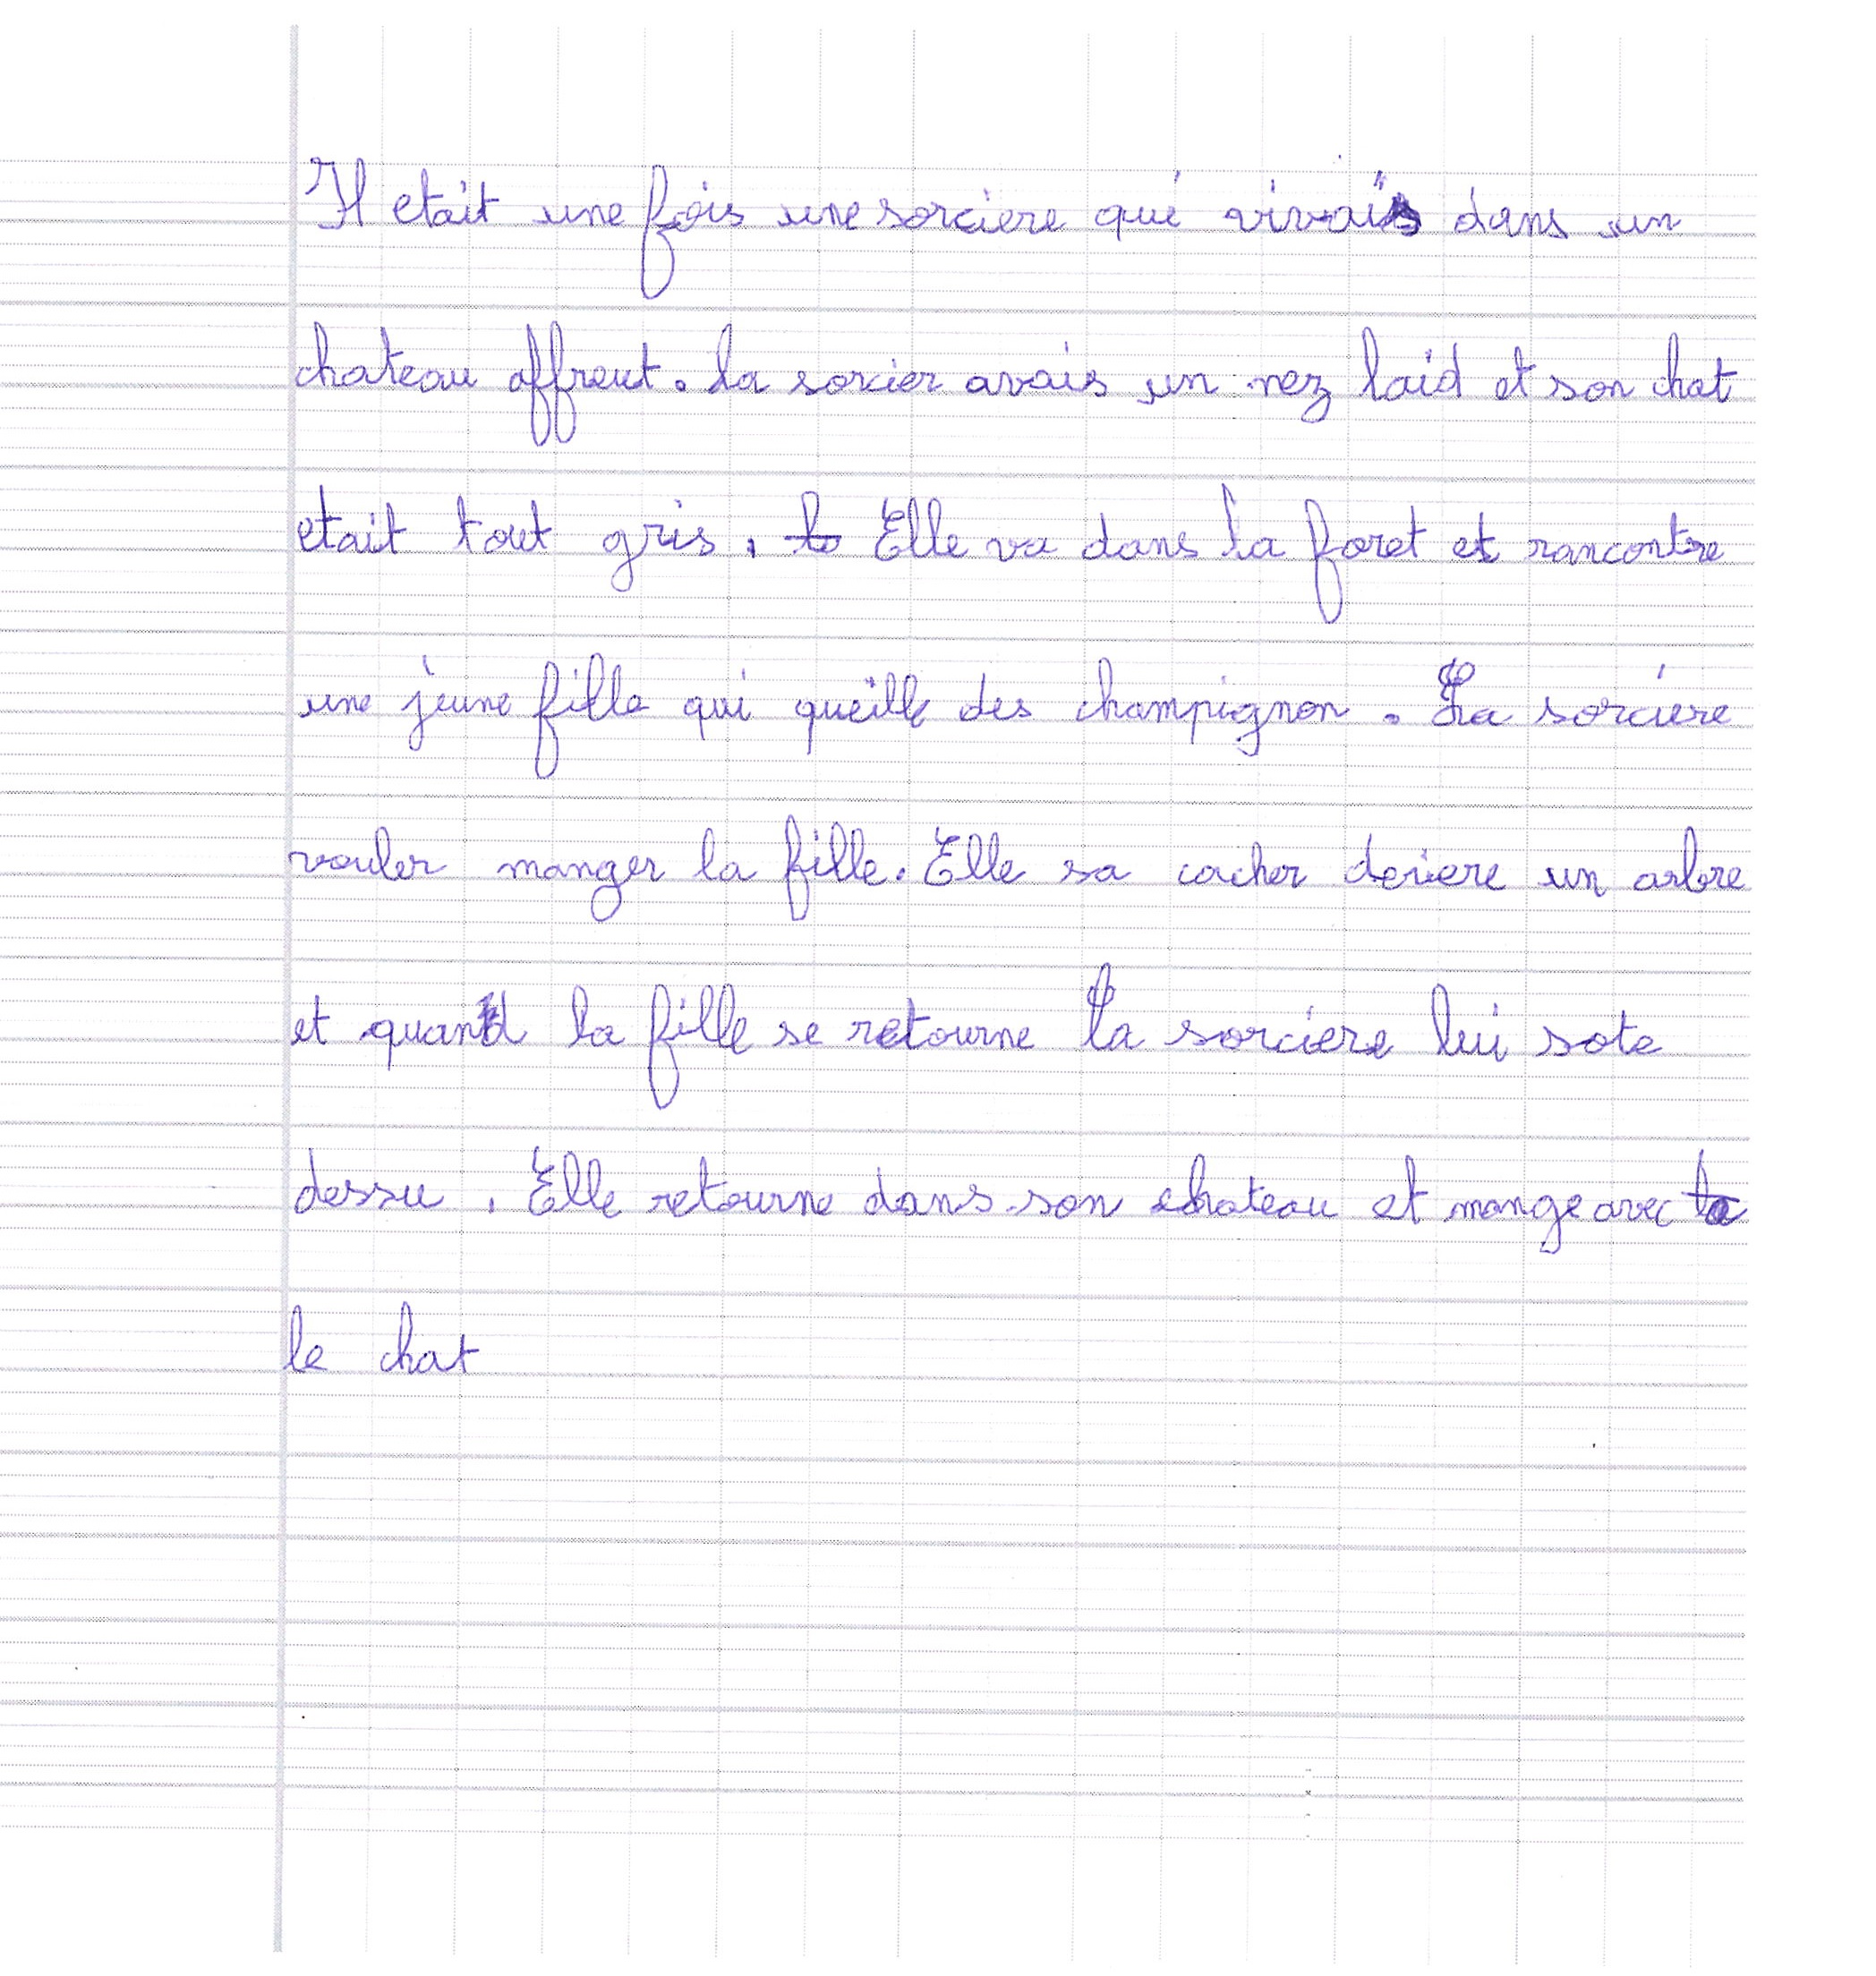 Il etait une fois une sorciere qui vivais dans un
chateau affreut. la sorcier avais un nez laid et son chat
etait tout gris. Elle va dans la foret et rancontre
une jeune fille qui queille des champignon. La sorciere
vouler manger la fille. Elle sa cacher deriere un arbre
et quand la fille se retourne la sorciere lui sote
dessu. Elle retourne dans son chateau et mange avec
le chat